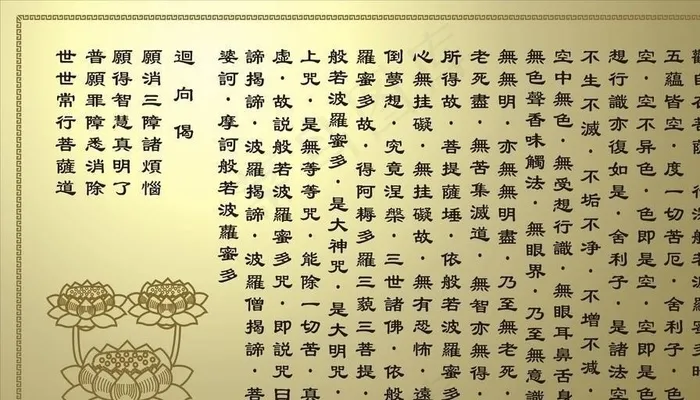 五蘊皆空·度一切苦厄·舍利子·色
空·空不异色·色即是空·空即是色
想行識亦復如是·舍利子·是諸法空
不生不滅·不垢不净·不增不减·
空中無色·無受想行識·無眼耳鼻舌身
無色聲香味觸法·無眼界·乃至無意識
無無明·亦無無明盡·乃至無老死·
老死盡·無苦集滅道·無智亦無得·
所得故·菩提薩埵·依般若波羅蜜多
心無挂礙·無挂礙故·無有恐怖·遠
倒夢想·究竟涅槃·三世諸佛·依般
羅蜜多故·得阿耨多羅三藐三菩提·
般若波羅蜜多·是大神咒·是大明咒·
上咒·是無等等咒·能除一切苦·真
虛·故説般若波羅蜜多咒·即説咒曰
諦揭諦·波羅揭諦·波羅僧揭諦·菩
婆訶·摩訶般若波羅蜜多
迴向偈
願消三障諸煩惱
願得智慧真明了
普願罪障悉消除
世世常行菩薩道